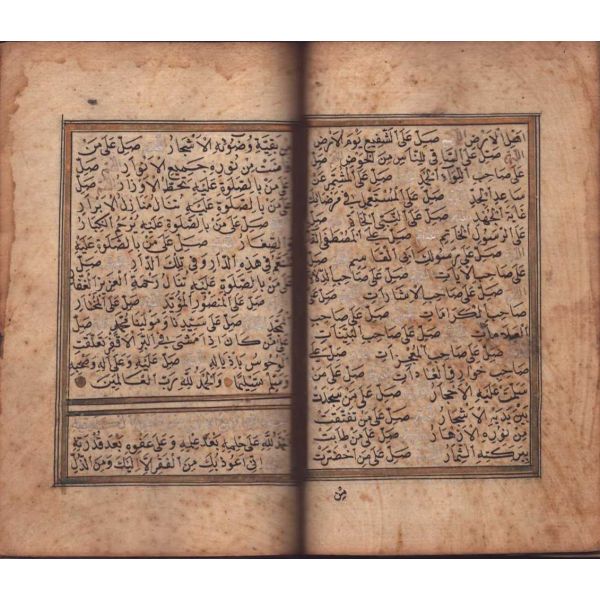 اهل الارض صل على الشفيع يوم العرض
صل على الساقي للناس من الحوض
على صاحب اللواء الحمد صل على المشمر عن
ساعد الجد صل على المستعمل في مرضاتك
غاية الجهد صل على النبي الخاتم
على الرسول الخاتم صل على المصطفى
صل على رسولك ابي القاسم
على صاحب الايات صل على صاحب الدلا
صل على صاحب الاشارات
صاحب الكرامات صل على صاحب
العلامات صل على صاحب البينات
صل على صاحب المعجزات
صاحب خوارق العادات صل على من
سلمت عليه الاحجار صل على من سجدت
بين يديه الاشجار صل على من تفتقت
من نوره الازهار صل على من طابت
ببركته الثمار صل على من اخضرت
من
من بقية وضوئه الاشجار صل على من
فاضت من نوره جميع الانوار صل
على من بالصلوة عليه تحط الاوزار صل
على من بالصلوة عليه تنال منازل الابرار
صل على من بالصلوة عليه يرحم الكبار
والصغار صل على من بالصلوة عليه
نتنعم في هذه الدار وفي تلك الدار صل
على من بالصلوة عليه تنال رحمة العزيز الغفار
صل على المنصور المؤيد صل على المختار
الممجد صل على سيدنا ومولينا محمد صل
على من كان اذا مشى في البر الاقفر تعلقت
الوحوش باذياله صل عليه وعلى اله وصحبه
وسلم تسليما والحمد لله رب العالمين
الحمد لله على حلمه بعد علمه وعلى عفوه بعد قدرته
اني اعوذ بك من الفقر الا اليك ومن الذل